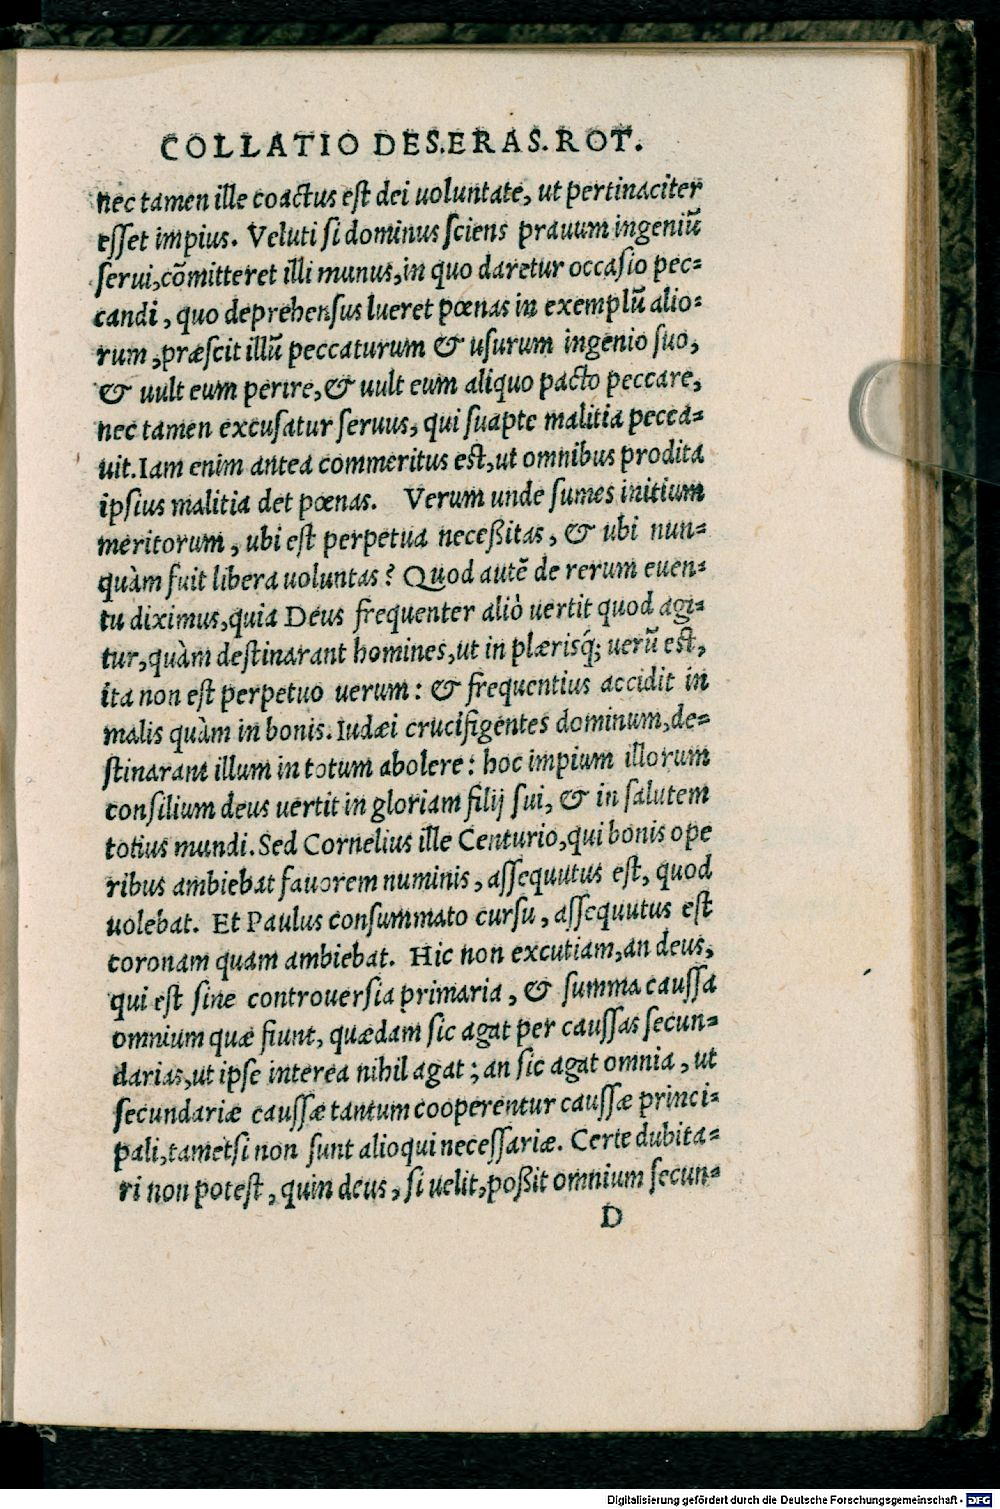 COLLATIO DES.ERAS.ROT.
nec tamen ille coactus est dei uoluntate, ut pertinaciter
esset impius. Veluti si dominus sciens prauum ingeniũ
serui,cõmitteret illi munus,in quo daretur occasio pec-
candi, quo deprehensus lueret pœnas in exemplũ alio-
rum,præscit illũ peccaturum & usurum ingenio suo,
& uult eum perire,& uult eum aliquo pacto peccare,
nec tamen excusatur seruus, qui suapte malitia pecca-
uit.Iam enim antea commeritus est,ut omnibus prodita
ipsius malitia det pœnas. Verum unde sumes initium
meritorum, ubi est perpetua neceßitas, & ubi nun-
quàm fuit libera uoluntas? Quod autẽ de rerum euen-
tu diximus,quia Deus frequenter aliò uertit quod agi-
tur,quàm destinarant homines,ut in plærisq́; uerũ est,
ita non est perpetuo uerum: & frequentius accidit in
malis quàm in bonis. Iudæi crucifigentes dominum,de-
stinarant illum in totum abolere: hoc impium illorum
consilium deus uertit in gloriam filij sui, & in salutem
totius mundi. Sed Cornelius ille Centurio,qui bonis ope
ribus ambiebat fauorem numinis, assequutus est, quod
uolebat. Et Paulus consummato cursu, assequutus est
coronam quam ambiebat. Hic non excutiam,an deus,
qui est sine controuersia primaria, & summa caussa
omnium quæ fiunt, quædam sic agat per caussas secun-
darias,ut ipse interea nihil agat; an sic agat omnia, ut
secundariæ caussæ tantum cooperentur caussæ princi-
pali,tametsi non sunt alioqui necessariæ. Certe dubita-
ri non potest, quin deus, si uelit,poßit omnium secun-
D
Digitalisierung gefördert durch die Deutsche Forschungsgemeinschaft - DFG